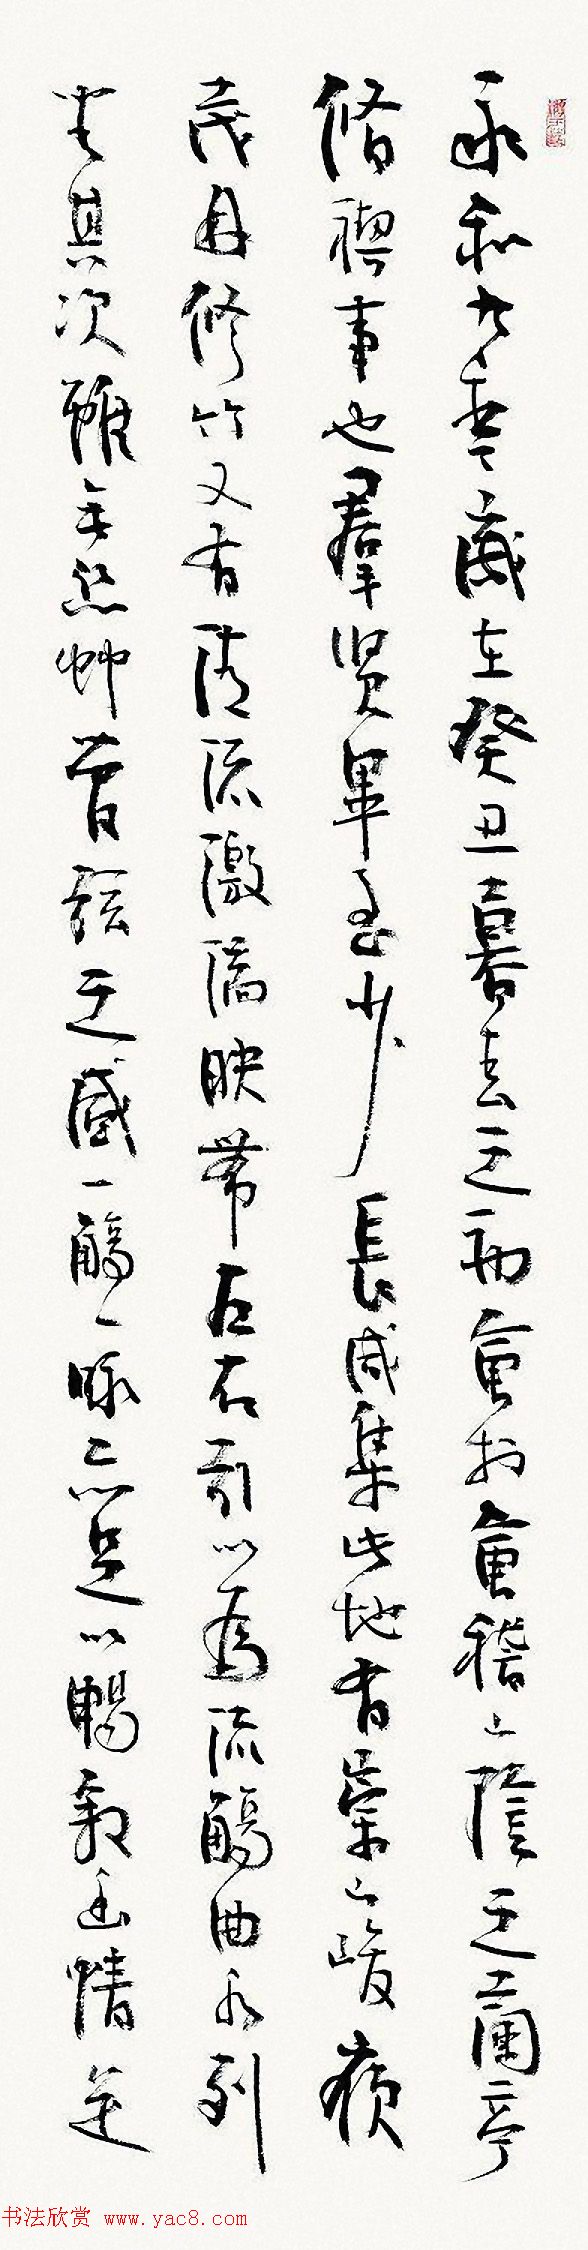 永和九年歲在癸丑暮春之初會於會稽山陰之蘭亭
脩禊事也羣賢畢至少長咸集此地有崇山峻嶺
茂林修竹又有清流激湍映帶左右引以為流觴曲水列
坐其次雖無絲竹管弦之盛一觴一詠亦足以暢敘幽情是
书法欣赏 www.yac8.com